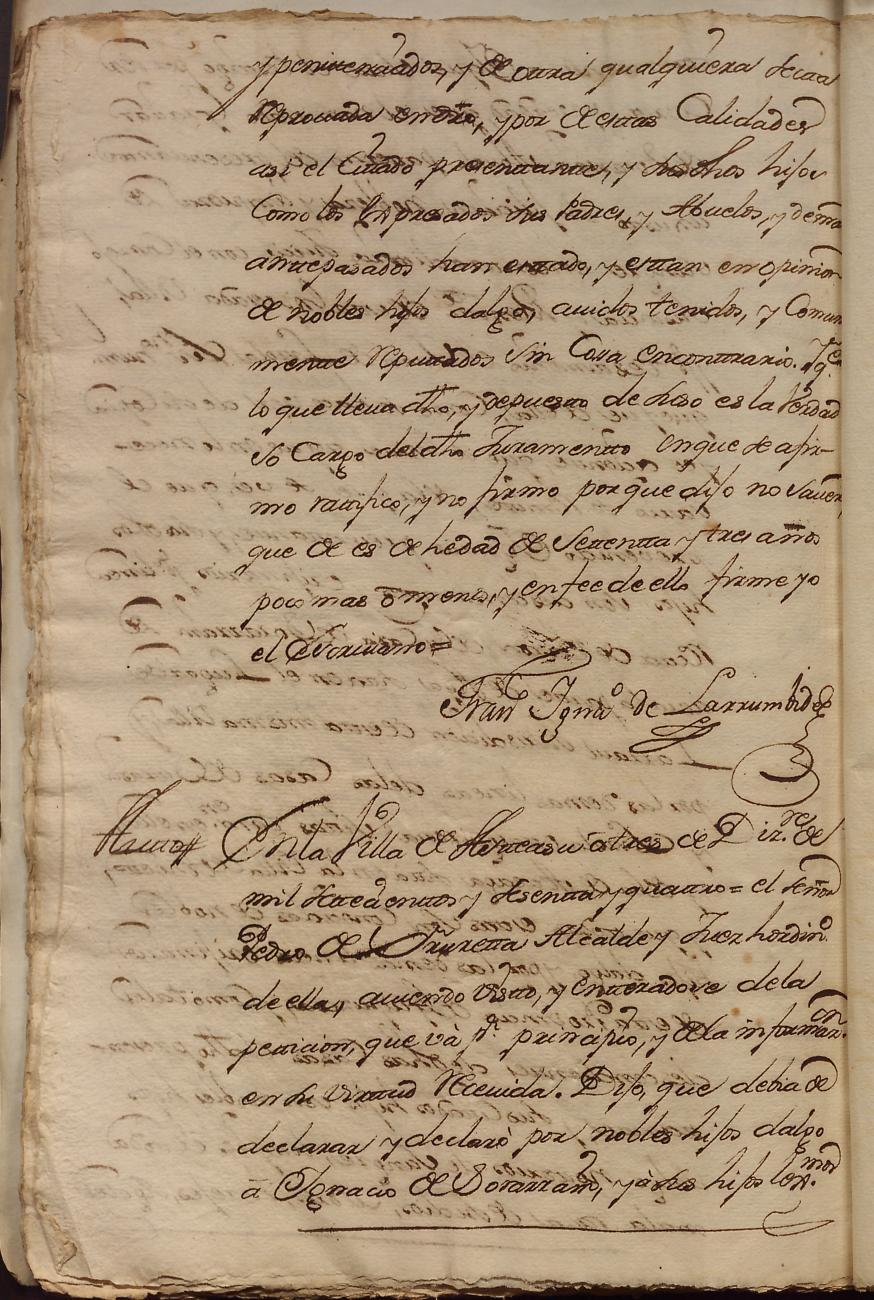 y penitenciados, y de otra qualquiera secta
reprouada en dro, y por de estas Calidades
asi el Citado presentante, y dhos hijos
Como los Expresados sus Padres, y Abuelos, y demas
antepasados han estado, y estan en opinion
de nobles hijos dalgo, auidos tenidos, y Comun
mente reputados sin Cosa encontrario. Y q.e
lo que lleua dho, y depuesto de suso es la Verdad
so Cargo del dho Juramento en que se afir-
mo ratifico, y no firmo porque dijo no Sauer,
que de es de hedad de Setenta y tres años
poco mas ō menos, y en fee de ello firme yo
el Escriuano=
Fran Ign.o de Larrumbide
Auto En la Villa de a tres de Diz.re de
mil setecientos y sesenta y quatro= el señor
Pedro de Alcalde y Juez hordin.o
de ella, auiendo Visto, y enteradose de la
peticion, que vá p.r principio, y de la informaz.on
en su Virtud Reciuida. Dijo, que debia de
declarar y declaró por nobles hijos dalgo
ā Ignacio de Sorarrain, y á sus hijos